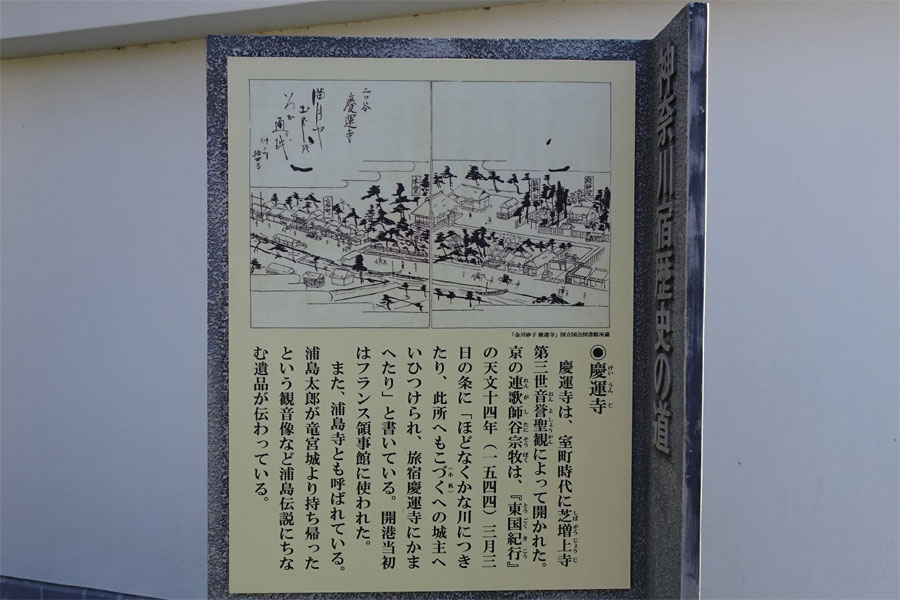 神奈川宿歴史の道
二ツ谷
慶運寺
本堂
「金川砂子 慶運寺」国立国会図書館所蔵
◉慶運寺
けいうんじ
慶運寺は、室町時代に芝増上寺
しばぞうじょうじ
第三世音誉聖観によって開かれた。
おんよしょうかん
京の連歌師谷宗牧は、『東国紀行』
れんがしたにそうぼく
とうごくきこう
の天文十四年(一五四四)三月三
日の条に「ほどなくかな川につき
たり、此所へもこづくへの城主へ
(小机)
いひつけられ、旅宿慶運寺にかま
へたり」と書いている。開港当初
はフランス領事館に使われた。
また、浦島寺とも呼ばれている。
浦島太郎が竜宮城より持ち帰った
という観音像など浦島伝説にちな
む遺品が伝わっている。